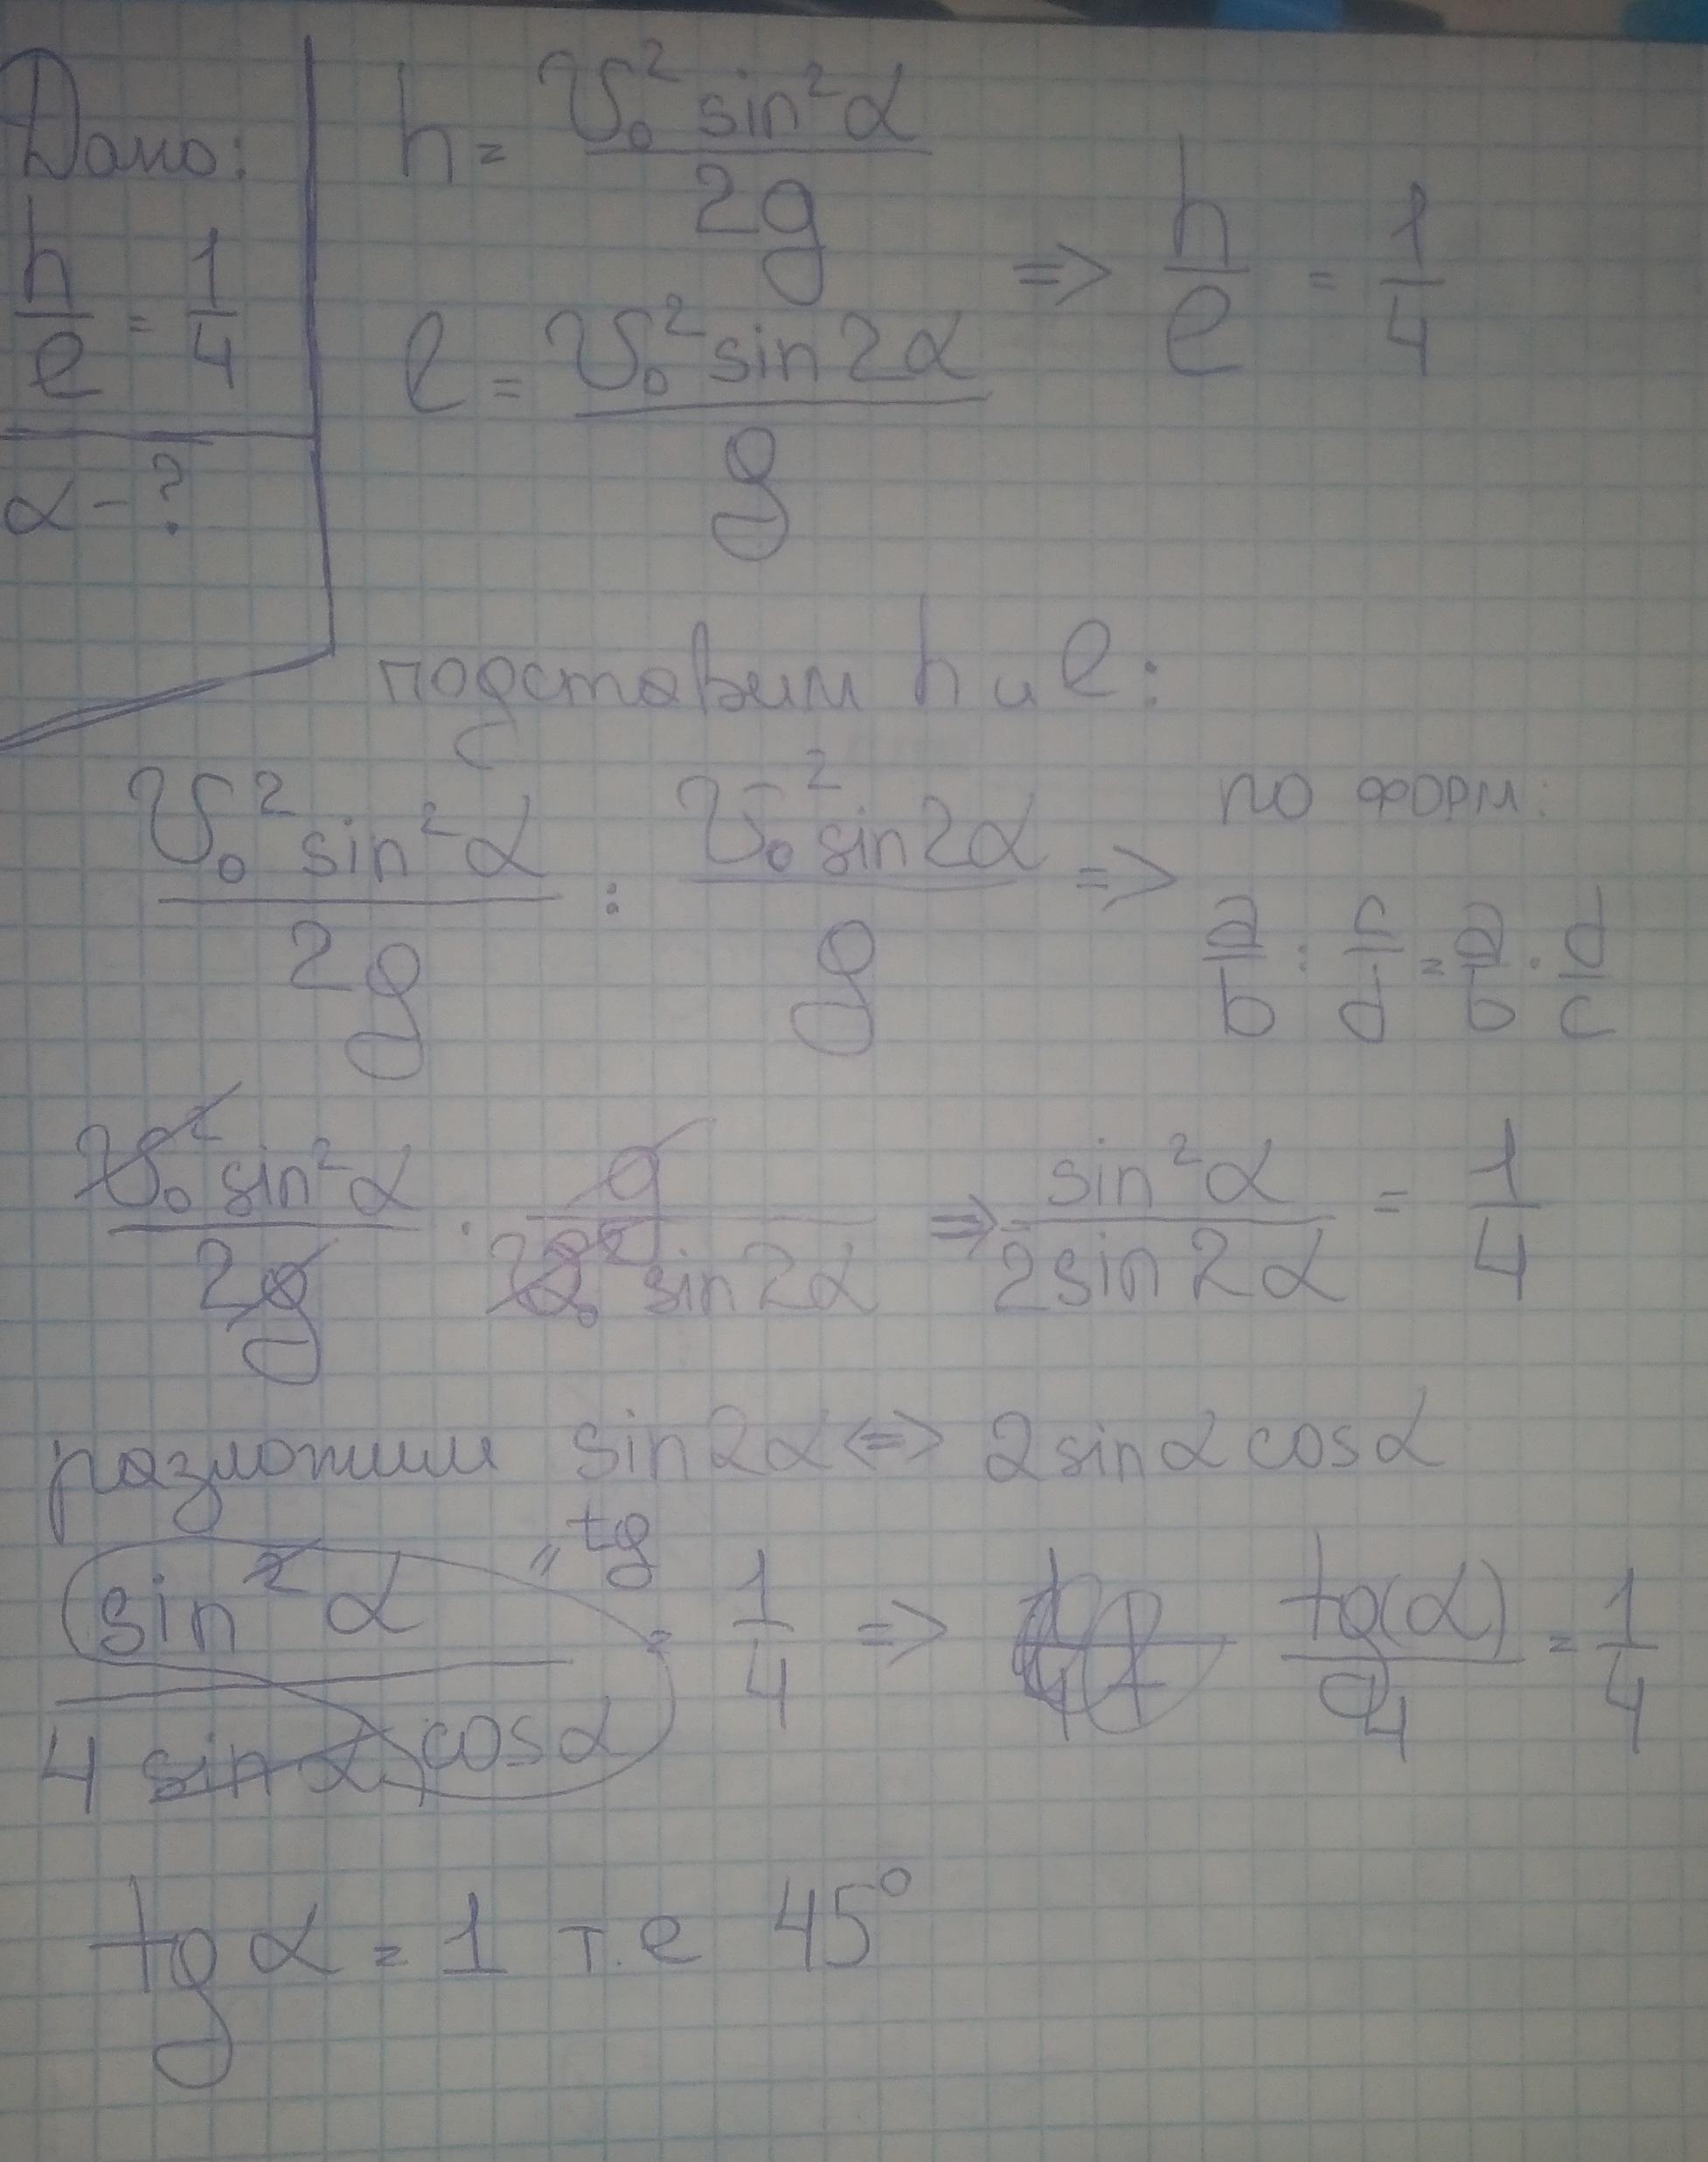 Дано:
h/l = 1/4
α - ?
h = V₀² sin²α / 2g
l = V₀² sin2α / g
=> h/l = 1/4
подставим h и l:
V₀² sin²α / 2g : V₀² sin2α / g => по форм:
a/b : c/d = a/b · d/c
V₀² sin²α / 2g · g / V₀² sin2α => sin²α / 2sin2α = 1/4
разложим sin2α <=> 2sinα cosα
sin²α / 4 sinα cosα = 1/4 => tg(α) / 4 = 1/4
" tg
tgα = 1 т.е 45°